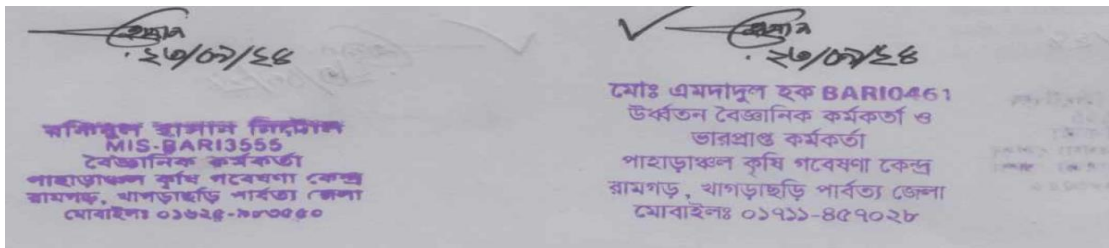 ২৩/০৯/২৪
হাসান নিটোল
MIS-BARI3555
বৈজ্ঞানিক কর্মকর্তা
পাহাড়াঞ্চল কৃষি গবেষণা কেন্দ্র
রামগড়, খাগড়াছড়ি পার্বত্য জেলা
মোবাইলঃ
২৩/০৯/২৪
মোঃ এমদাদুল হক BARI0461
উর্ধ্বতন বৈজ্ঞানিক কর্মকর্তা ও
ভারপ্রাপ্ত কর্মকর্তা
পাহাড়াঞ্চল কৃষি গবেষণা কেন্দ্র
রামগড়, খাগড়াছড়ি পার্বত্য জেলা
মোবাইলঃ ০১৭১১-৪৫৭০২৮